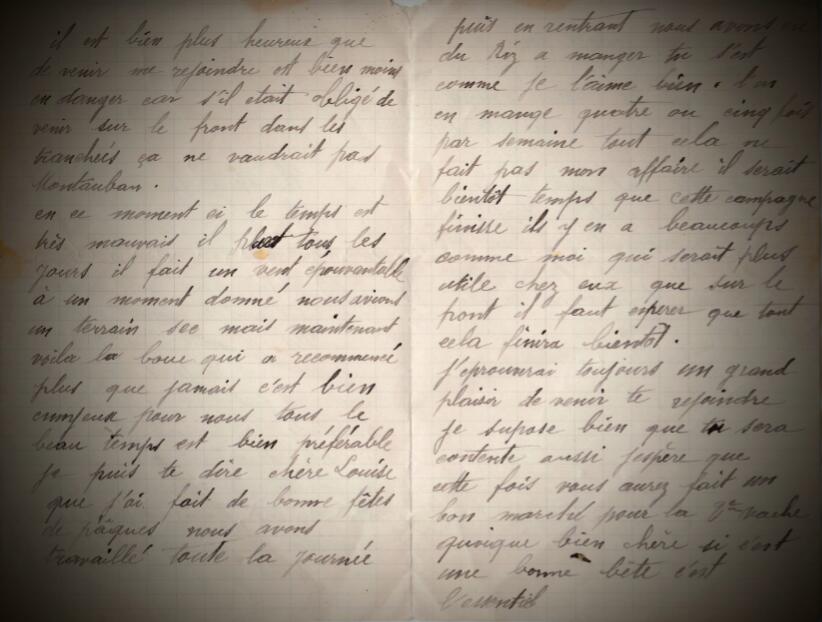 il est bien plus heureux que
de venir me rejoindre est bien moins
en danger car s'il etait obligé de
venir sur le front dans les
tranchées ça ne vaudrait pas
Montauban.
en ce moment ci le temps est
très mauvais il pleut tous les
jours il fait un vent épouvantable
à un moment donné nous avions
un terrain sec mais maintenant
voila la boue qui a recommencé
plus que jamais c'est bien
ennyeux pour nous tous le
beau temps est bien préférable
je puis te dire chère Louise
que j'ai fait de bonne fêtes
de pâques nous avons
travaillé toute la journée
puis en rentrant nous avons eu
du Riz a manger tu s'est
comme je l'aime bien. l'on
en mange quatre ou cinq fois
par semaine tout cela ne
fait pas mon affaire il serait
bientôt temps que cette campagne
finisse ils y en a beaucoups
comme moi qui serait plus
utile chez eux que sur le
front il faut espérer que tout
cela finira bientôt.
j'eprouvrai toujours un grand
plaisir de venir te rejoindre
je supose bien que tu sera
contente aussi j'espère que
cette fois vous aurez fait un
bon marché pour la vache
quoique bien chère si c'est
une bonne bête c'est
l'essentiel